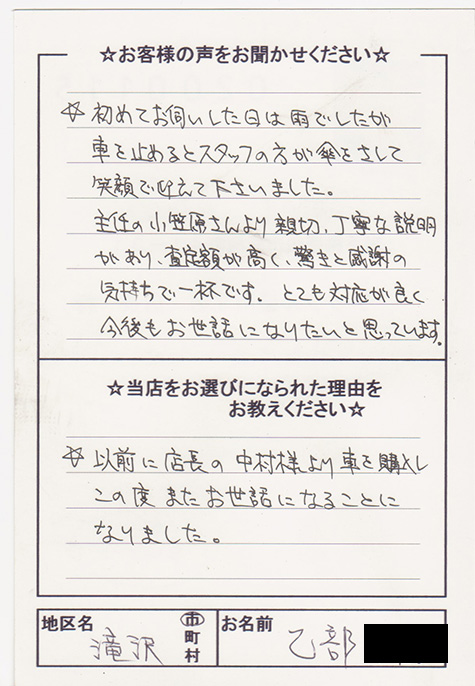 ☆お客様の声をお聞かせください☆
☆初めてお伺いした日は雨でしたが
車を止めるとスタッフの方が傘をさして
笑顔で迎えて下さいました。
主任の小笠原さんより親切、丁寧な説明
があり、査定額が高く、驚きと感謝の
気持ちで一杯です。とても対応が良く
今後もお世話になりたいと思っています。
☆当店をお選びになられた理由を
お教えください☆
☆以前に店長の中村様より車を購入し
この度またお世話になることに
なりました。
地区名 滝沢 市町村 お名前 乙部